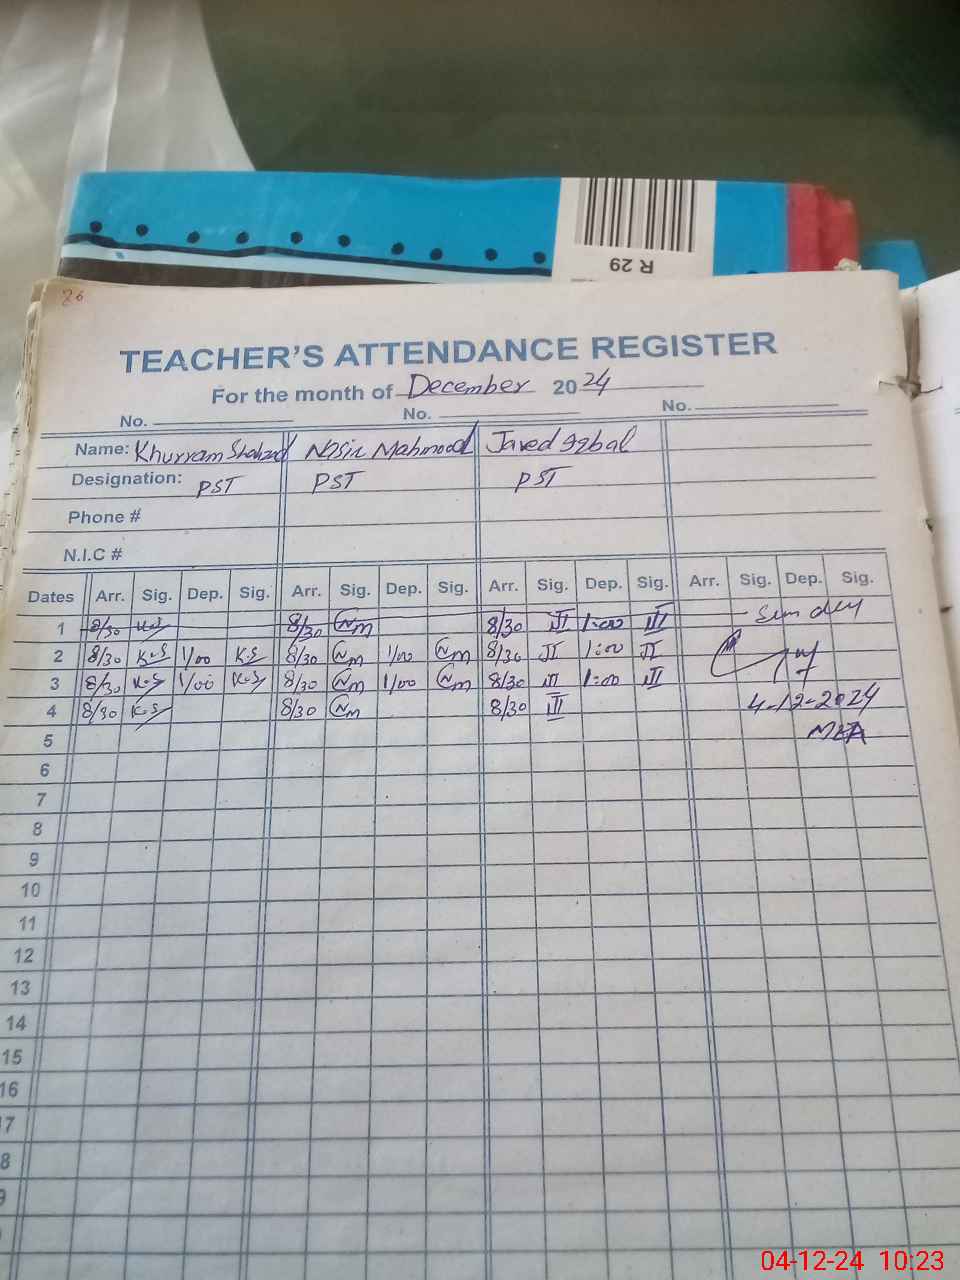 R 29
26
TEACHER'S ATTENDANCE REGISTER
For the month of December 2024
No. No. No.
Name: Khurram Shahzad Nasir Mahmood Javed Iqbal
Designation: PST PST PST
Phone #
N.I.C #
Dates Arr. Sig. Dep. Sig. Arr. Sig. Dep. Sig. Arr. Sig. Dep. Sig. Arr. Sig. Dep. Sig.
1 8/30 K.S 8/30 Nm 8/30 1:00 Sunday
2 8/30 K.S 1/00 K.S 8/30 Nm 1/00 Nm 8/30 1:00
3 8/30 K.S 1/00 K.S 8/30 Nm 1/00 Nm 8/30 1:00
4 8/30 K.S 8/30 Nm 8/30 4-12-2024
5 MEA
6
7
8
9
10
11
12
13
14
15
16
7
8
9
04-12-24 10:23